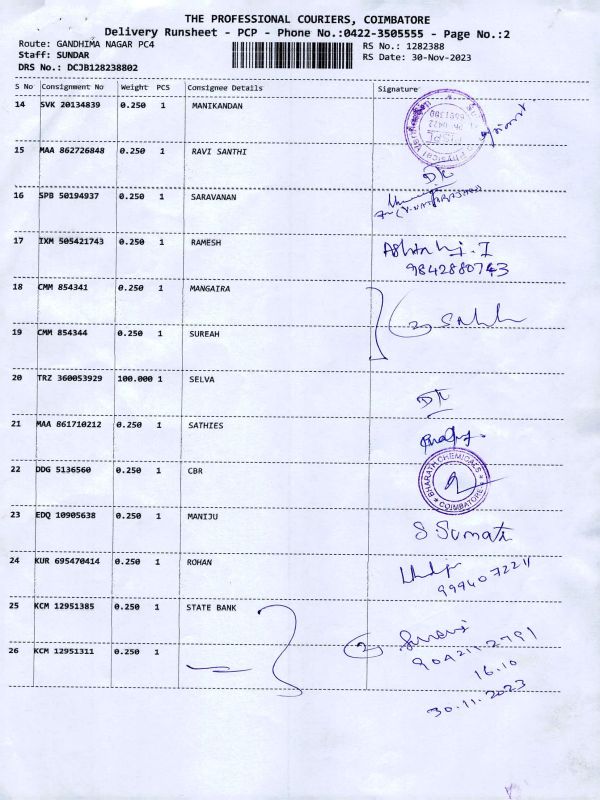 THE PROFESSIONAL COURIERS, COIMBATORE
Delivery Runsheet - PCP - Phone No.:0422-3505555 - Page No.:2
Route: GANDHIMA NAGAR PC4
RS No.: 1282388
Staff: SUNDAR
RS Date: 30-Nov-2023
DRS No.: DCJB128238802
S No Consignment No Weight PCS Consignee Details Signature
14 SVK 20134839 0.250 1 MANIKANDAN
15 MAA 862726848 0.250 1 RAVI SANTHI
16 SPB 50194937 0.250 1 SARAVANAN
17 IXM 505421743 0.250 1 RAMESH
9842880743
18 CMM 854341 0.250 1 MANGAIRA
2
19 CMM 854344 0.250 1 SUREAH
20 TRZ 360053929 100.000 1 SELVA
21 MAA 861710212 0.250 1 SATHIES
22 DDG 5136560 0.250 1 CBR
BHARATH CHEMICALS
COIMBATORE
23 EDQ 10905638 0.250 1 MANIJU
S. Sumati
24 KUR 695470414 0.250 1 ROHAN
25 KCM 12951385 0.250 1 STATE BANK
2
26 KCM 12951311 0.250 1
16.10
30.11.2023